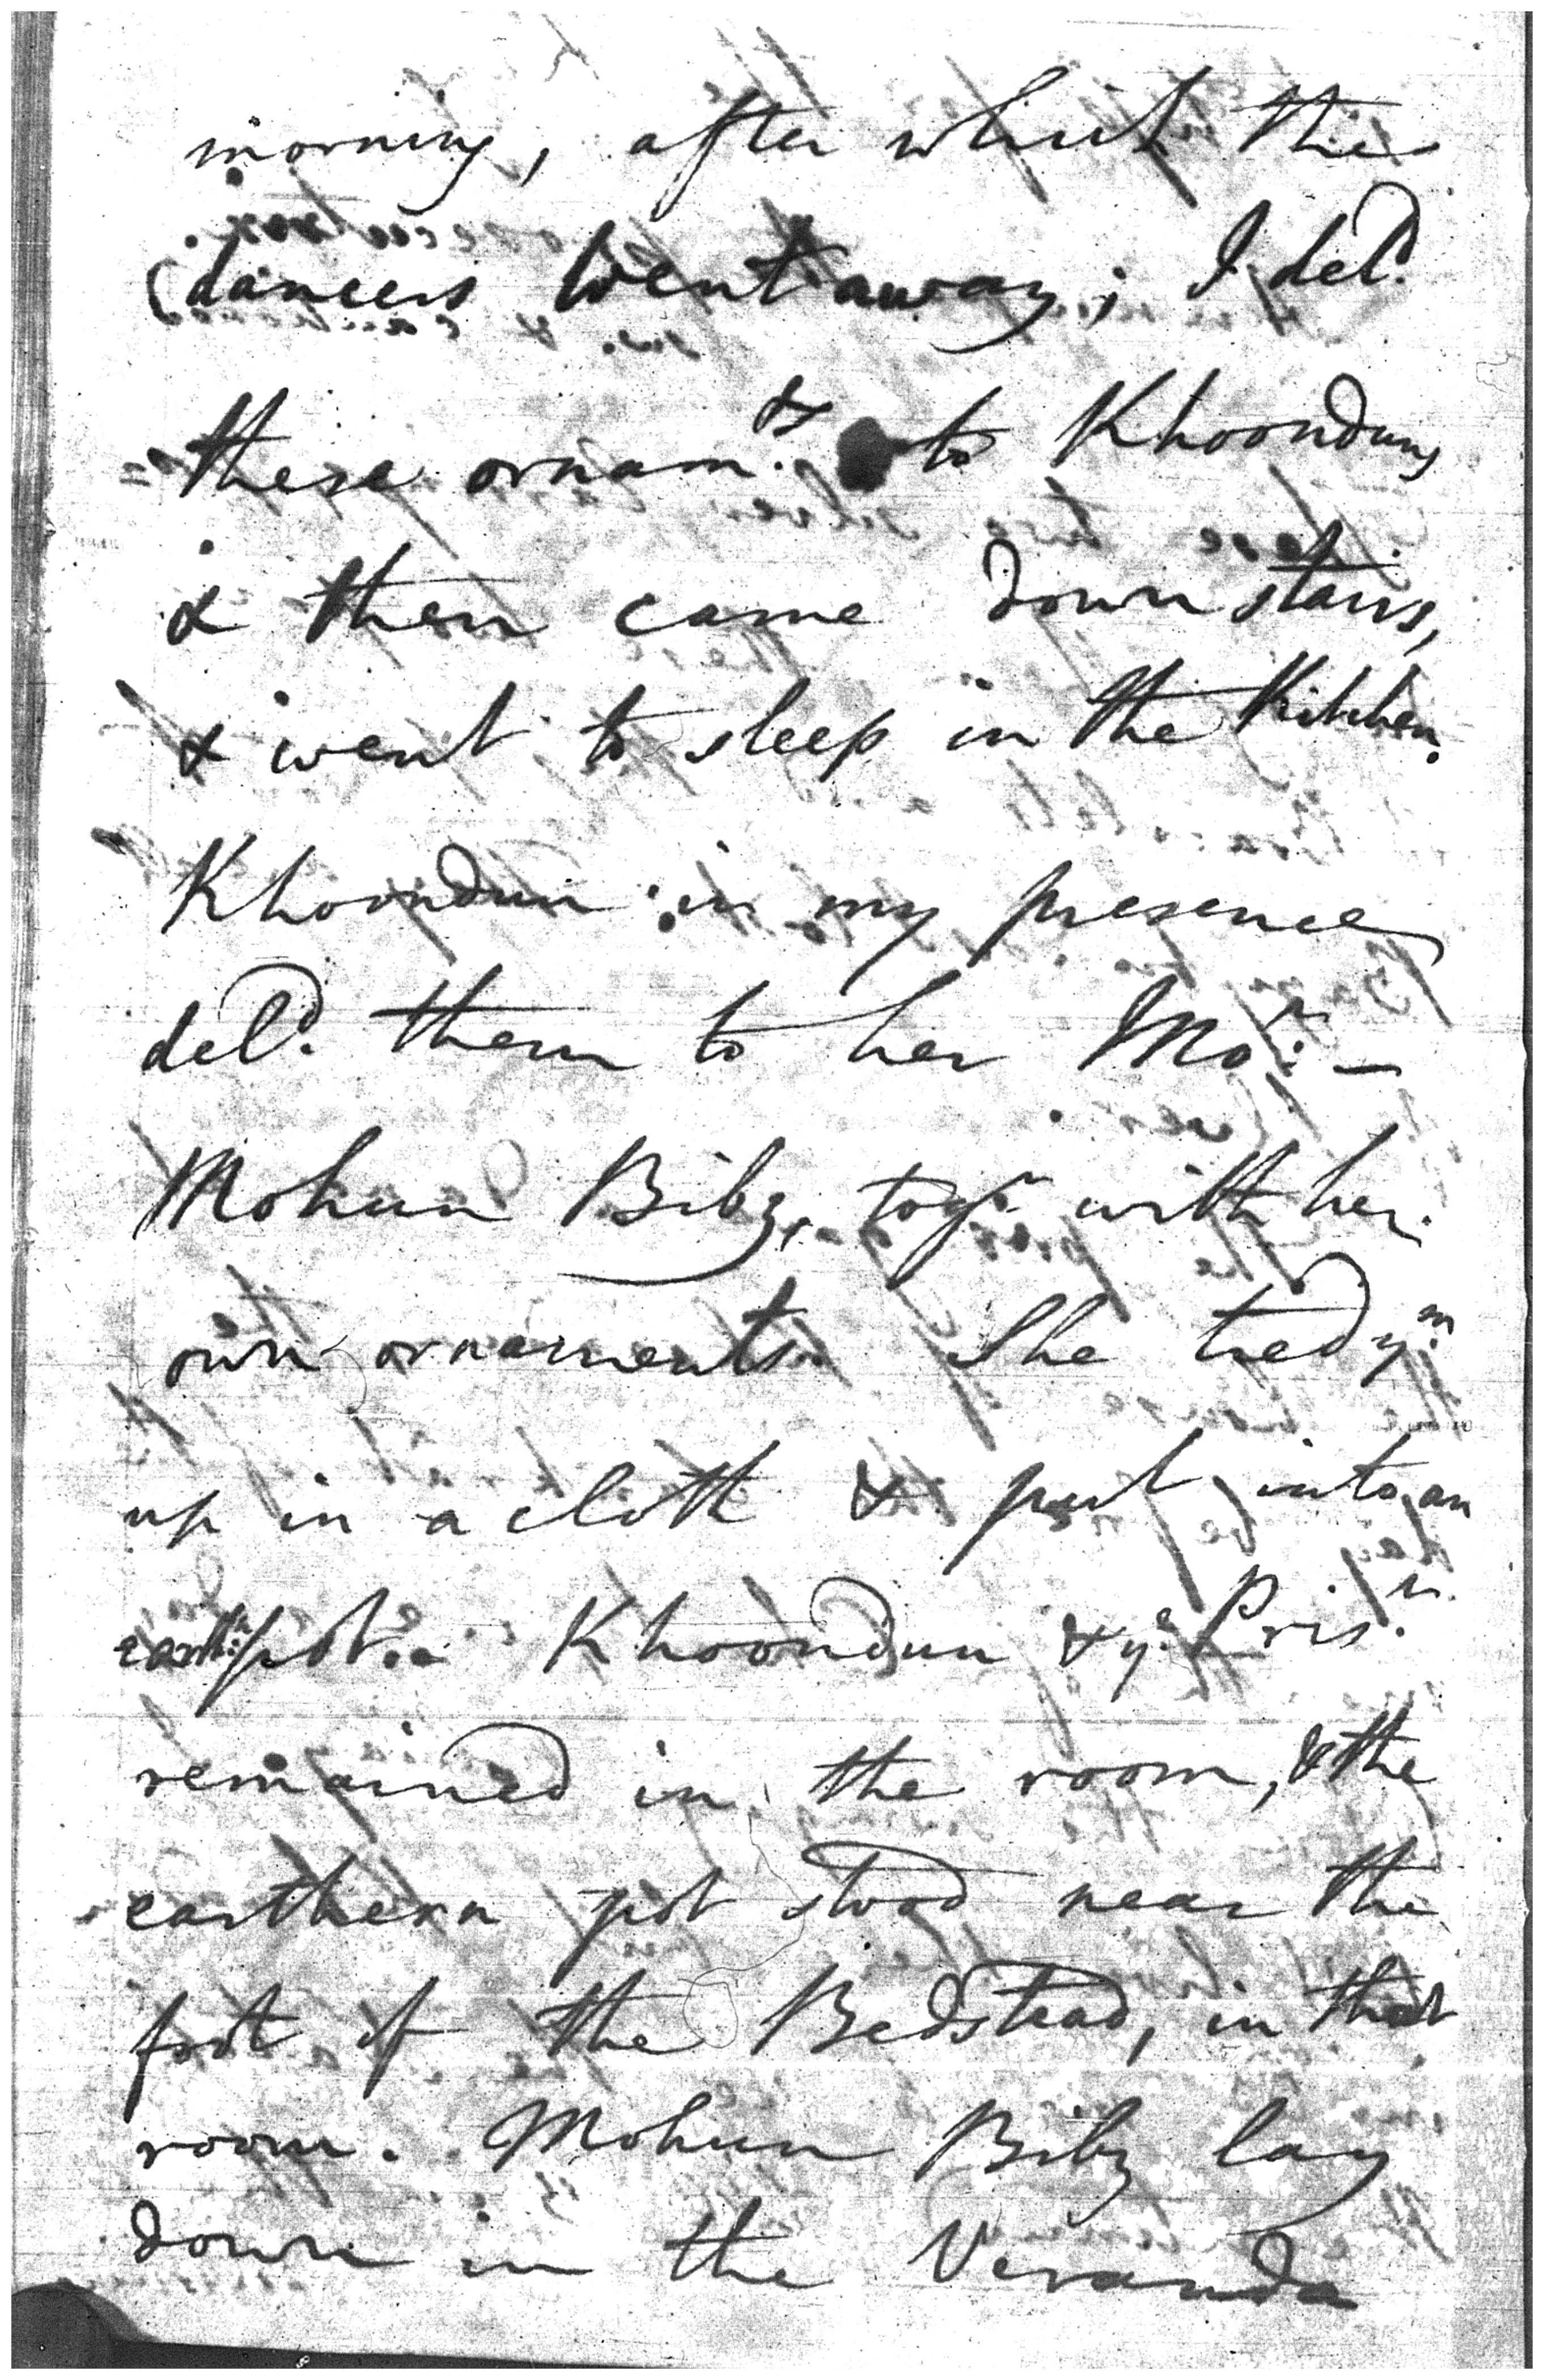 morning, after which the
dancers went away; I del.d
these ornam.ts to Khoondun
& then came down stairs,
& went to sleep in the Kitchen.
Khoondun in my presence
del.d them to her Mo.r –
Mohun Biby, tog.r with her
own ornaments. She tied y.m
up in a cloth & put into an
earth.n pot. Khoondun & y.e Pris.r
remained in the room, & the
earthern pot stood near the
foot of the Bedstead, in that
room. Mohun Biby lay
down in the Veranda